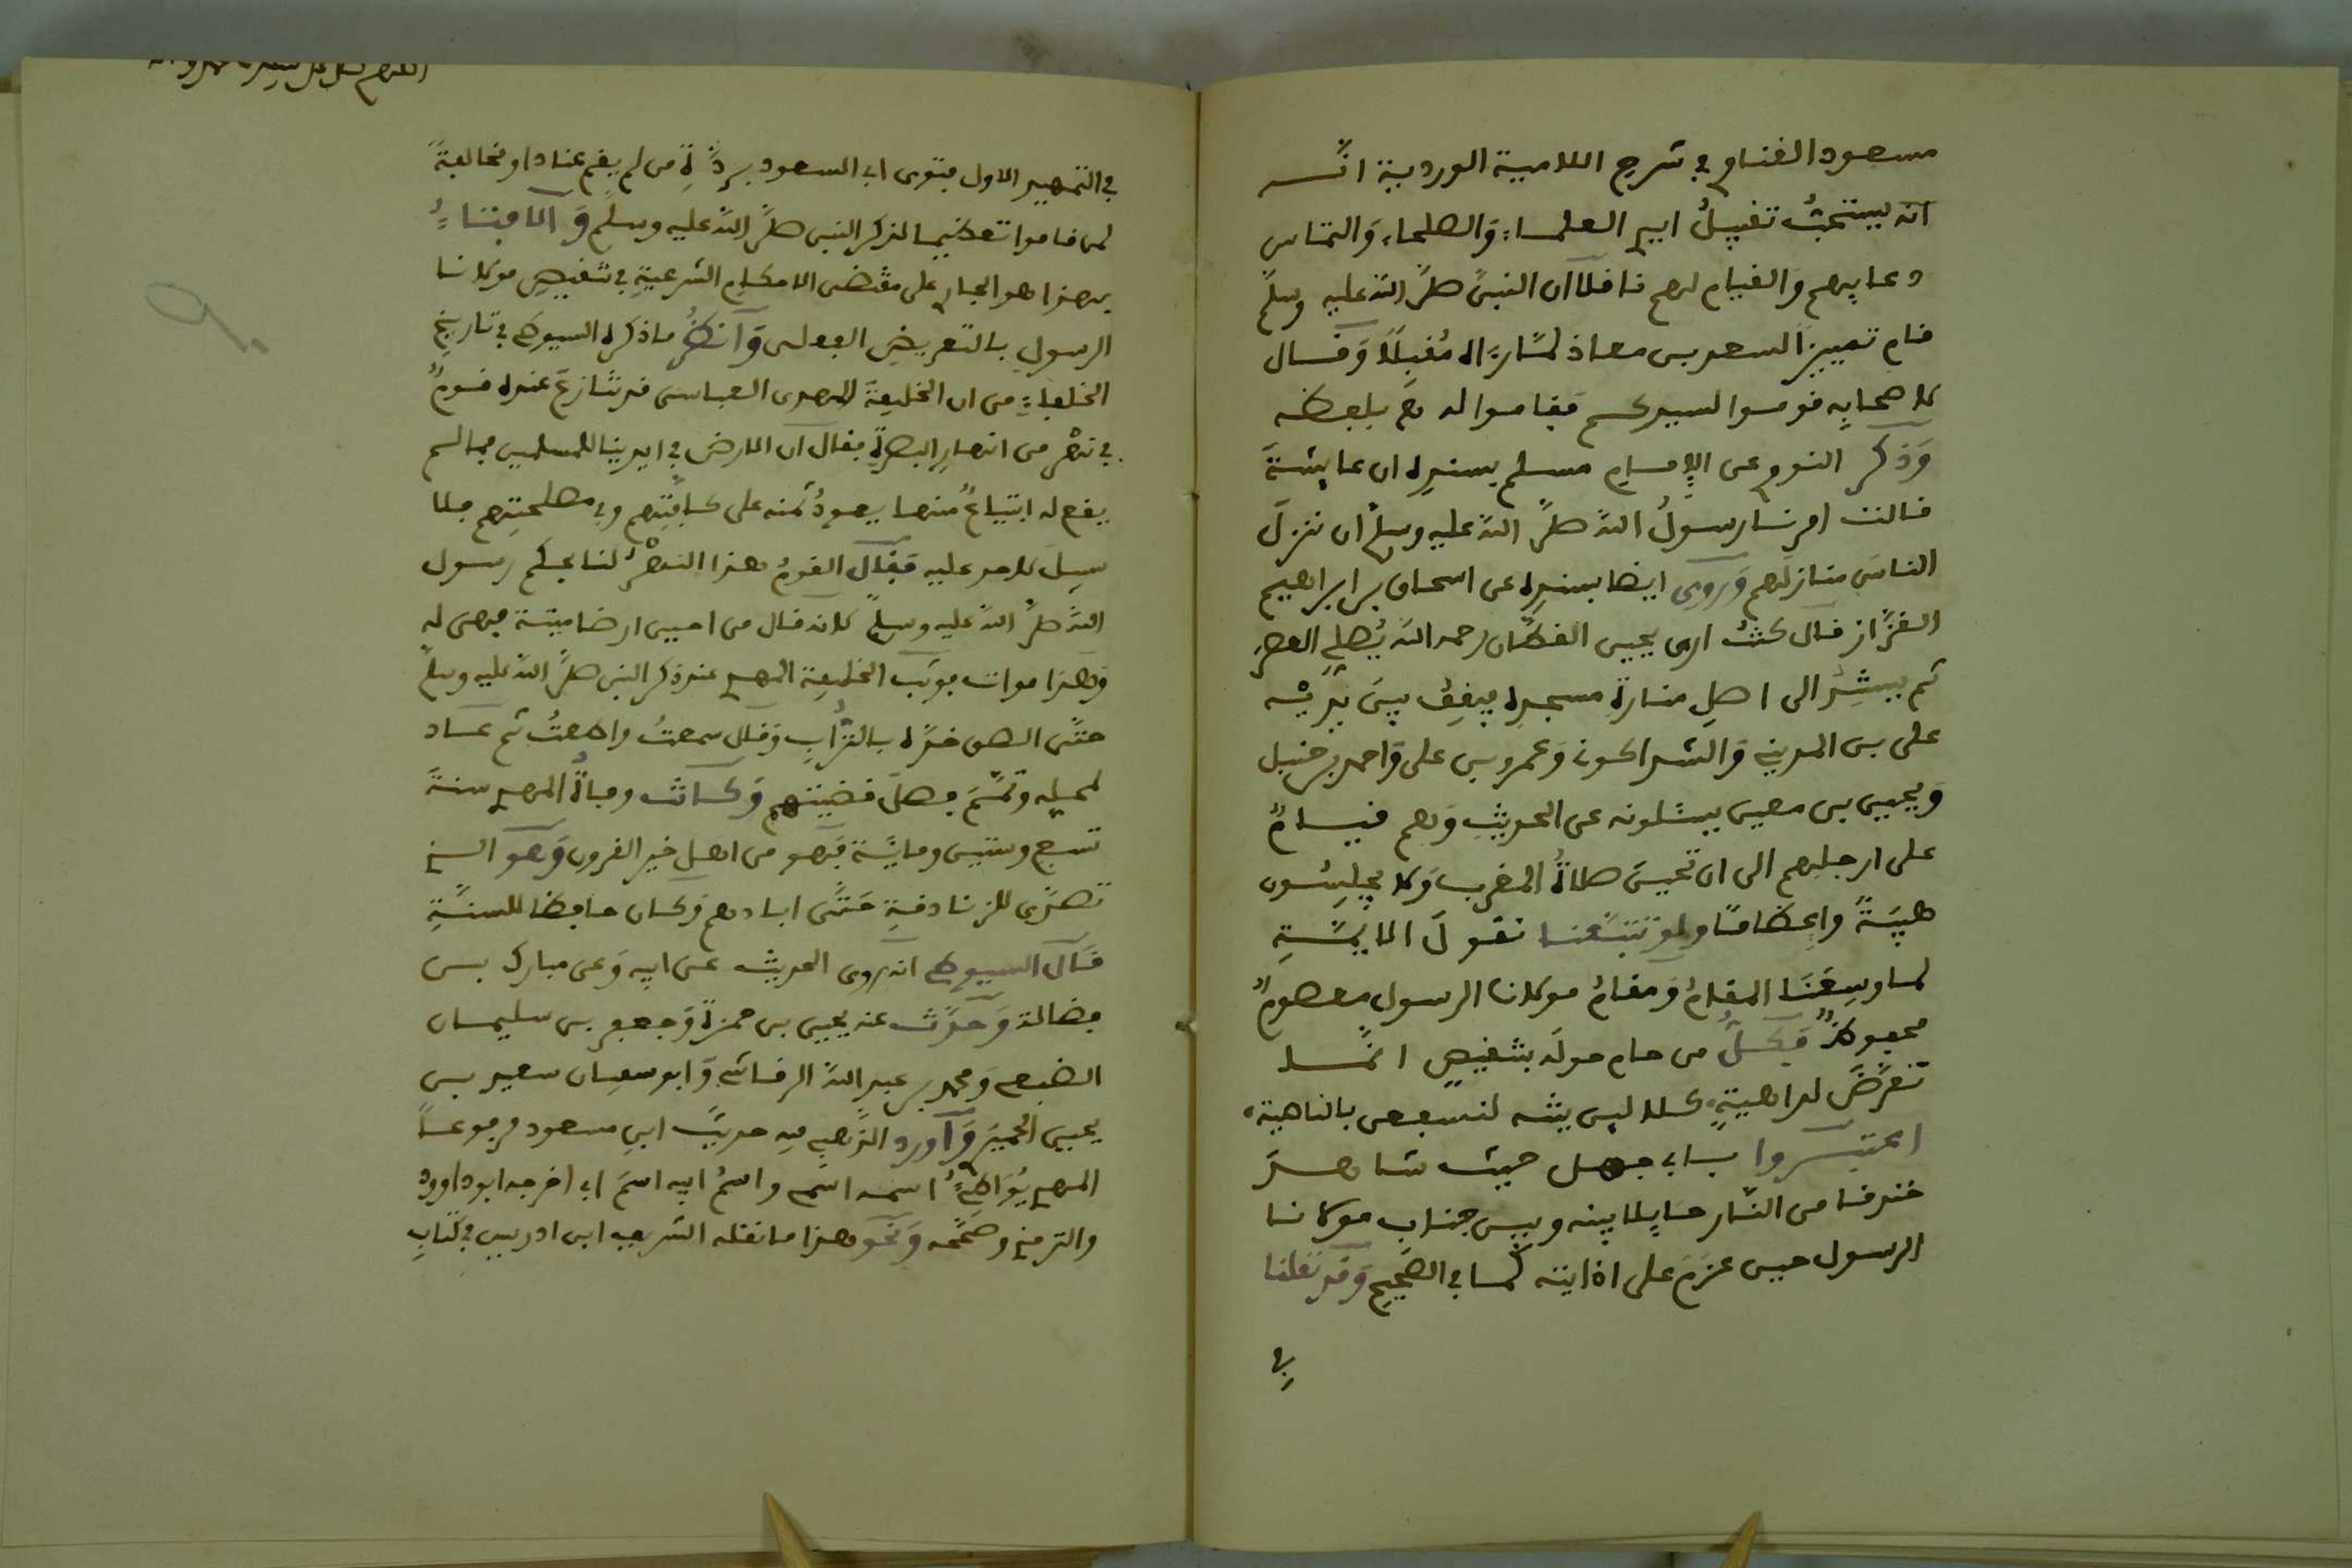 مسعود القناوي في شرح اللامية الوردية انه
انه يستحب تقبيل ايدي العلماء والصلحاء والتماس
دعايهم والقيام لهم ناقلا ان النبي صلى الله عليه وسلم
قام لسعد بن معاذ لما رءاه مقبلا وقال
لاصحابه قوموا لسيدكم فقاموا له
وذكر النووي عن الامام مسلم بسنده ان عايشة
قالت امرنا رسول الله صلى الله عليه وسلم ان ننزل
الناس منازلهم وروى ايضا بسنده عن اسحاق بن ابراهيم
القزاز قال كنت ارى يحيى القطان رحمه الله يصلي العصر
ثم يستند الى اصل منارة مسجده فيقف بين يديه
على بن المديني والشاذكوني وعمرو بن على واحمد بن حنبل
ويحيى بن معين يسئلونه عن الحديث وهم قيام
على ارجلهم الى ان تحين صلاة المغرب ولا يجلسون
هيبة واعظاما ولو تتبعنا نقول الايمة
لما وسعنا المقام ومقام مولانا الرسول معصوم
محفوظ فكل من حام حوله بتنقيص انما
تعرض لداهية كلا لين لم ينته لنسفعن بالناصية
اعتبروا بابي جهل حيث شاهد
خندقا من النار حايلا بينه وبين جناب مولانا
الرسول حين عزم على اذايته كما في الصحيح وقد نقلنا
في
في التمهيد الاول فتوى ابي السعود بردة من لم يقم عنادا ومخالفة
لمن قاموا تعظيما لذكر النبي صلى الله عليه وسلم والافتاء
بهذا هو الجار على مقتضى الاحكام الشرعية في تنقيص مولانا
الرسول بالتعريض الفعلى وانظر ما ذكره السيوطي في تاريخ
الخلفاء من ان الخليفة المهدى العباسى قد تنازع عنده قوم
في نهر من انهار البصرة فقال ان الارض في ايدينا للمسلمين فما لم
يقع له ابتياع منها يعود ثمنه على كافتهم وفي مصلحتهم فلا
سبيل لاحد عليه فقال القوم هذا النهر لنا بحكم رسول
الله صلى الله عليه وسلم لانه قال من احيى ارضا ميتة فهى له
وهذا موات فوثب الخليفة المهدي عند ذكر النبي صلى الله عليه وسلم
حتى الصق خده بالتراب وقال سمعت واطعت ثم عاد
لمحله وتمم فصل قضيتهم وكانت وفاة المهدي سنة
تسع وستين ومائة فهو من اهل خير القرون وهو الذي
تصدى للزنادقة حتى ابادهم وكان حافظا للسنة
قال السيوطي انه روى الحديث عن ابيه وعن مبارك بن
فضالة وحدث عنه يحيى بن حمزة وجعفر بن سليمان
الضبعي ومحمد بن عبد الله الرقاشي وابو سفيان سعيد بن
يحيى الحميري واورد الذهبي فيه حديث ابن مسعود مرفوعا
المهدي يواطئ اسمه اسمي واسم ابيه اسم ابي اخرجه ابو داوود
والترمذي وصححه ونحو هذا ما نقله الشريف ابن ادريس في كتاب